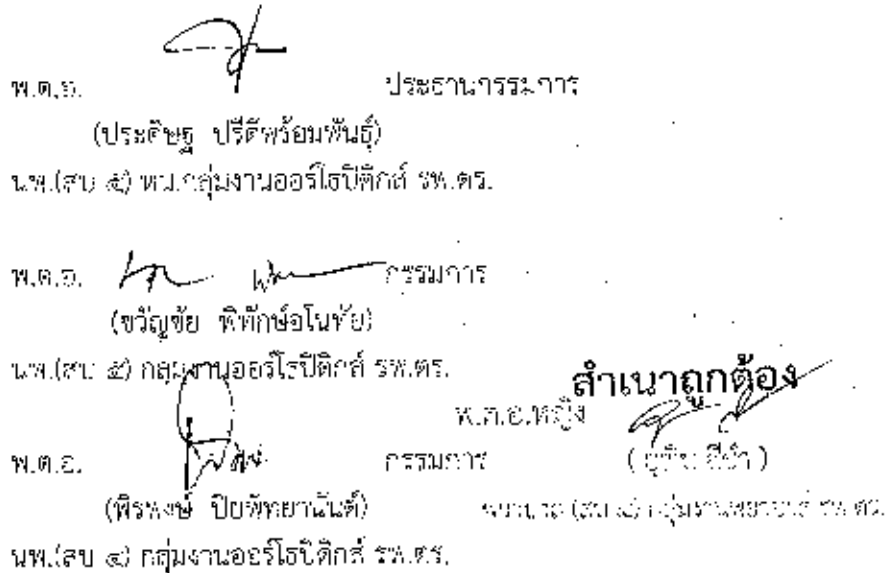 พ.ต.อ. ประธานกรรมการ
(ประดิษฐ ปรีดีพร้อมพันธุ์)
นพ.(สบ ๕) หน.กลุ่มงานออร์โธปิดิกส์ รพ.ตร.
พ.ต.อ. กรรมการ
(ขวัญชัย พิทักษ์อโนทัย)
นพ.(สบ ๕) กลุ่มงานออร์โธปิดิกส์ รพ.ตร.
สำเนาถูกต้อง
พ.ต.อ.หญิง
พ.ต.อ. กรรมการ
(พิรพงษ์ ปิยพิทยานันต์)
นพ.(สบ ๔) กลุ่มงานออร์โธปิดิกส์ รพ.ตร.